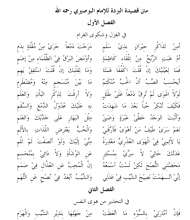 متن قصيدة البردة للإمام البوصيري رحمه الله
الفصل الأول
في الغزل وشكوى الغرام
أمن تذكر جيران بذي سلم مزجت دمعا جرى من مقلة بدم
أم هبت الريح من تلقاء كاظمة وأومض البرق في الظلماء من إضم
فما لعينيك إن قلت اكففا همتا وما لقلبك إن قلت استفق يهم
أيحسب الصب أن الحب منكتم ما بين منسجم منه ومضطرم
لولا الهوى لم ترق دمعا على طلل ولا أرقت لذكر البان والعلم
فكيف تنكر حبا بعد ما شهدت به عليك عدول الدمع والسقم
وأثبت الوجد خطي عبرة وضنى مثل البهار على خديك والعنم
نعم سرى طيف من أهوى فأرقني والحب يعترض اللذات بالألم
يا لائمي في الهوى العذري معذرة مني إليك ولو أنصفت لم تلم
عدتك حالي لا سري بمستتر عن الوشاة ولا دائي بمنحسم
محضتني النصح لكن لست أسمعه إن المحب عن العذال في صمم
إني اتهمت نصيح الشيب في عذلي والشيب أبعد في نصح عن التهم
الفصل الثاني
في التحذير من هوى النفس
فإن أمارتي بالسوء ما اتعظت من جهلها بنذير الشيب والهرم